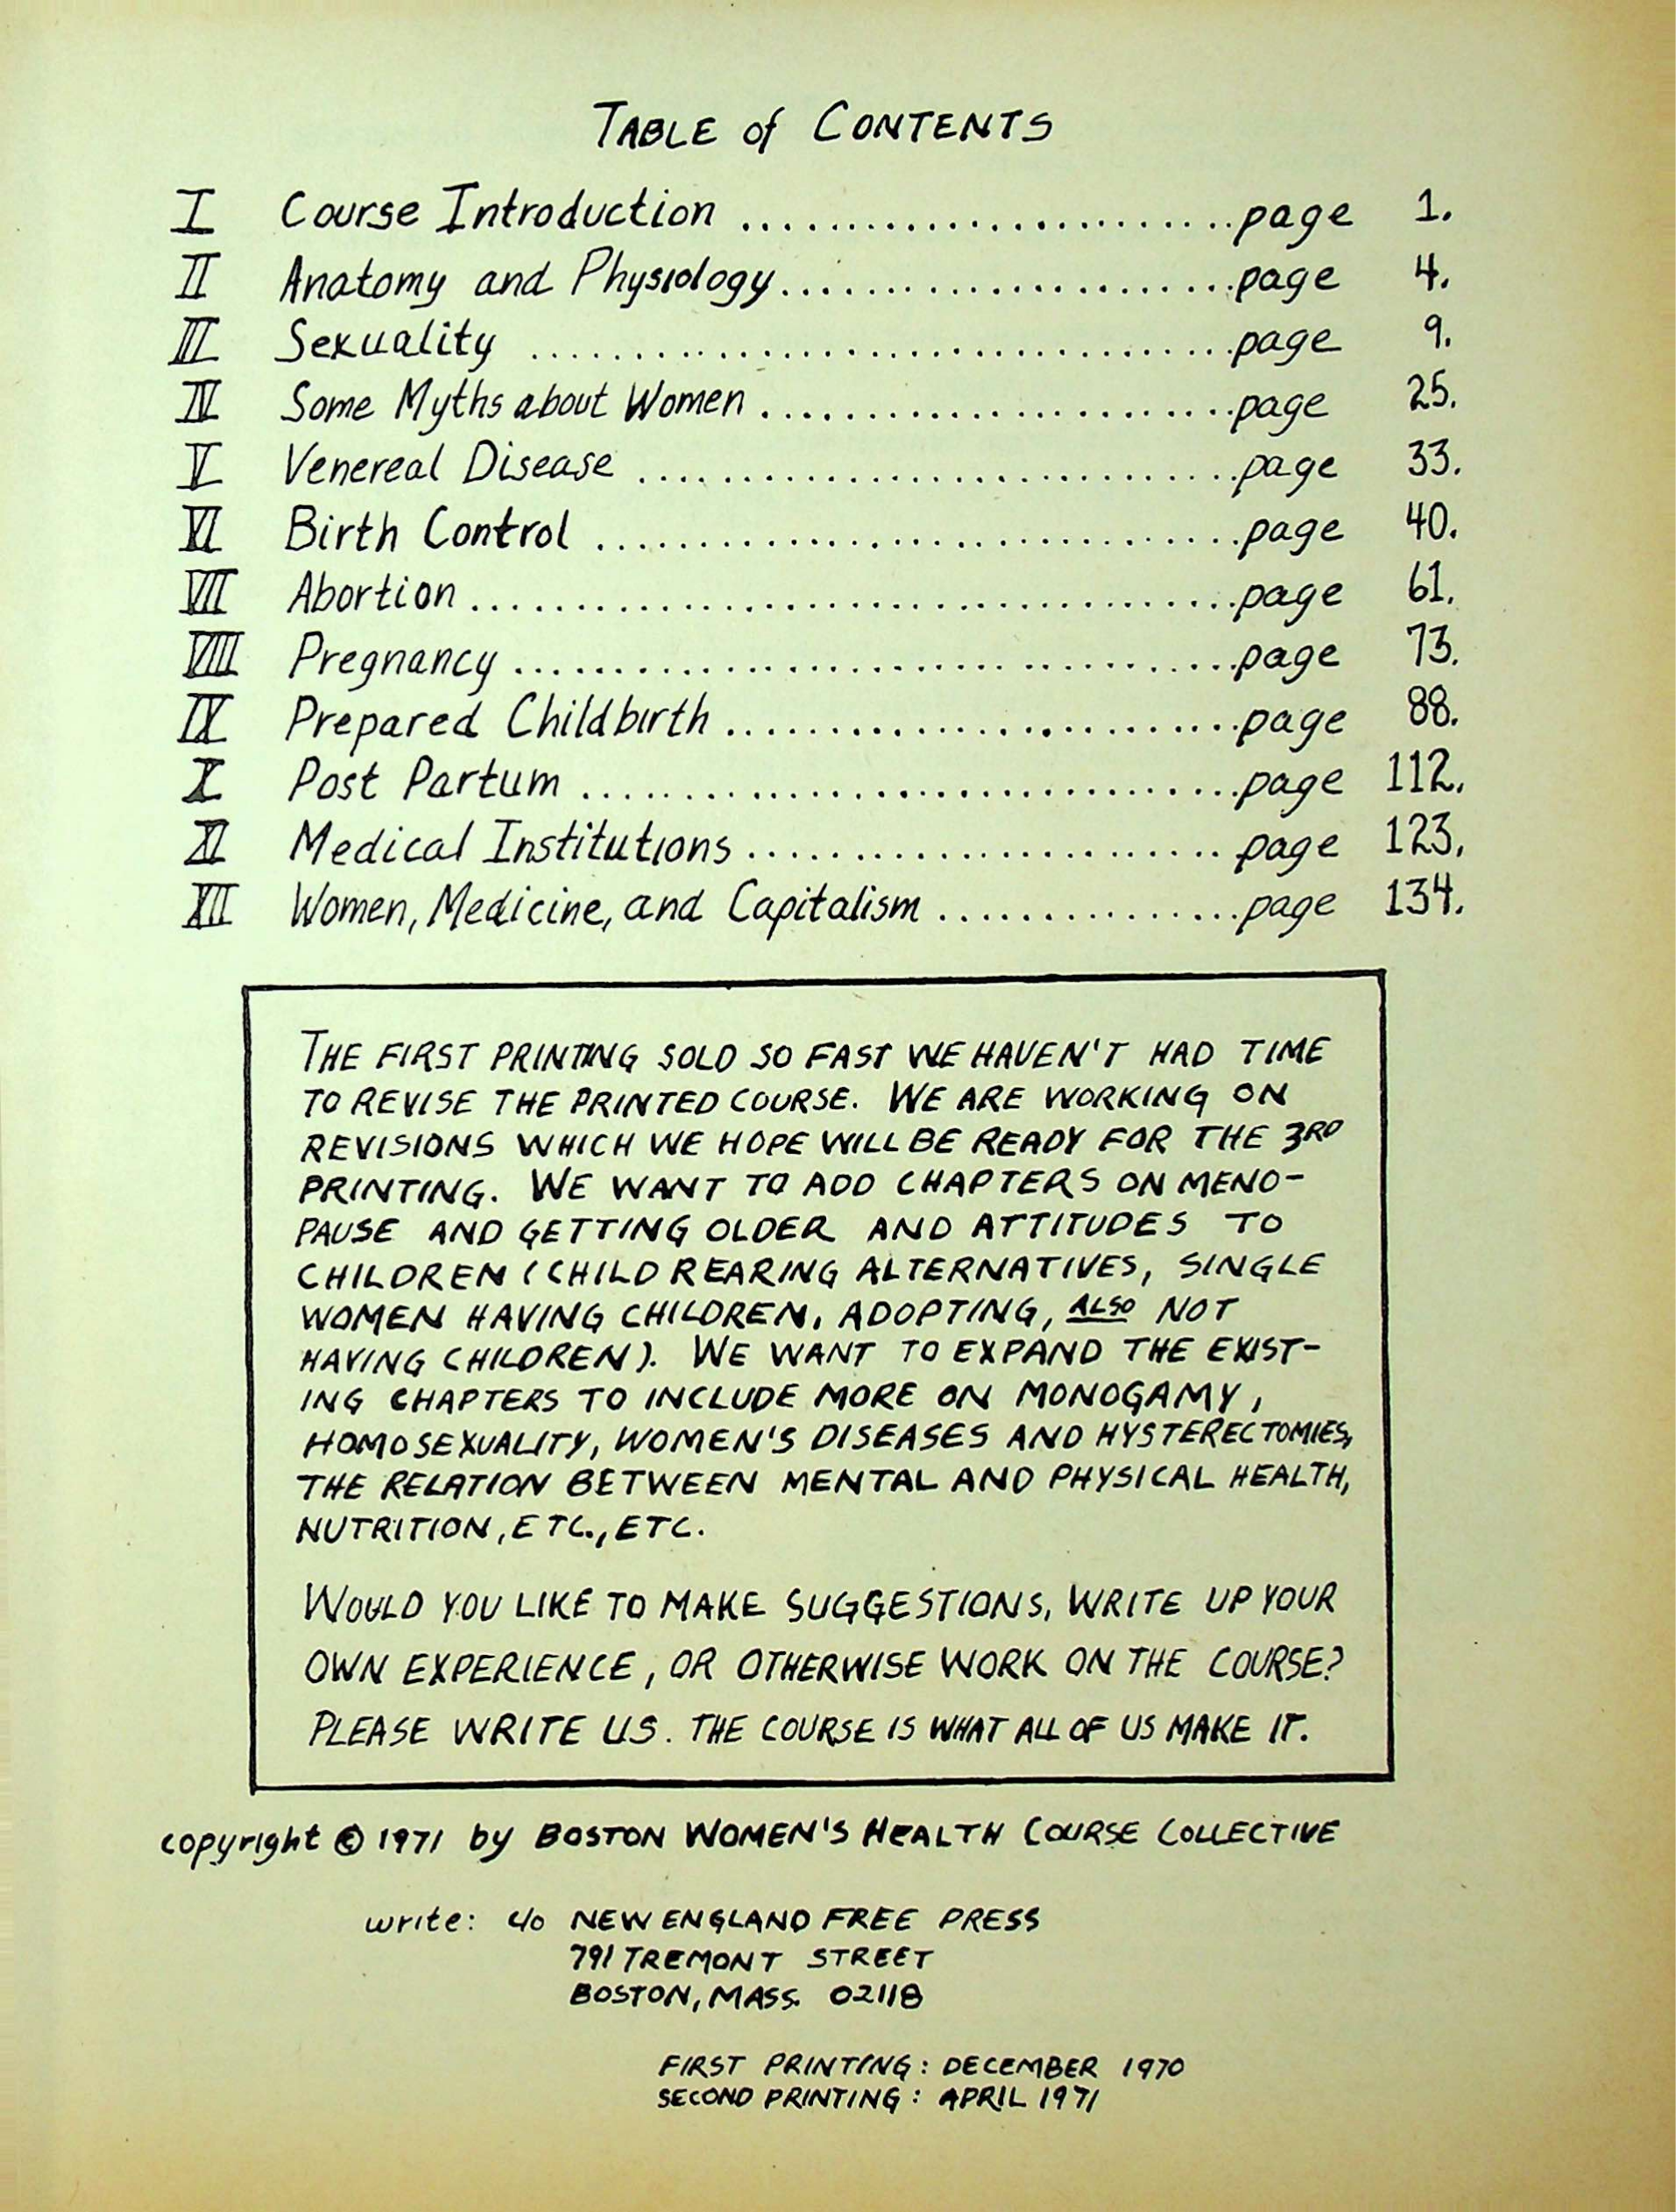 TABLE of CONTENTS
I Course Introduction ........................ page 1.
II Anatomy and Physiology ...................... page 4.
III Sexuality .................................. page 9.
IV Some Myths about Women ....................... page 25.
V Venereal Disease ............................. page 33.
VI Birth Control ............................... page 40.
VII Abortion ..................................... page 61.
VIII Pregnancy ................................... page 73.
IX Prepared Childbirth ......................... page 88.
X Post Partum ................................ page 112.
XI Medical Institutions ....................... page 123.
XII Women, Medicine, and Capitalism ............... page 134.
THE FIRST PRINTING SOLD SO FAST WE HAVEN'T HAD TIME
TO REVISE THE PRINTED COURSE. WE ARE WORKING ON
REVISIONS WHICH WE HOPE WILL BE READY FOR THE 3RD
PRINTING. WE WANT TO ADD CHAPTERS ON MENO-
PAUSE AND GETTING OLDER AND ATTITUDES TO
CHILDREN (CHILD REARING ALTERNATIVES, SINGLE
WOMEN HAVING CHILDREN, ADOPTING, ALSO NOT
HAVING CHILDREN). WE WANT TO EXPAND THE EXIST-
ING CHAPTERS TO INCLUDE MORE ON MONOGAMY,
HOMOSEXUALITY, WOMEN'S DISEASES AND HYSTERECTOMIES,
THE RELATION BETWEEN MENTAL AND PHYSICAL HEALTH,
NUTRITION, ETC., ETC.
WOULD YOU LIKE TO MAKE SUGGESTIONS, WRITE UP YOUR
OWN EXPERIENCE, OR OTHERWISE WORK ON THE COURSE?
PLEASE WRITE US. THE COURSE IS WHAT ALL OF US MAKE IT.
copyright © 1971 by BOSTON WOMEN'S HEALTH COURSE COLLECTIVE
write: c/o NEW ENGLAND FREE PRESS
791 TREMONT STREET
BOSTON, MASS. 02118
FIRST PRINTING: DECEMBER 1970
SECOND PRINTING: APRIL 1971